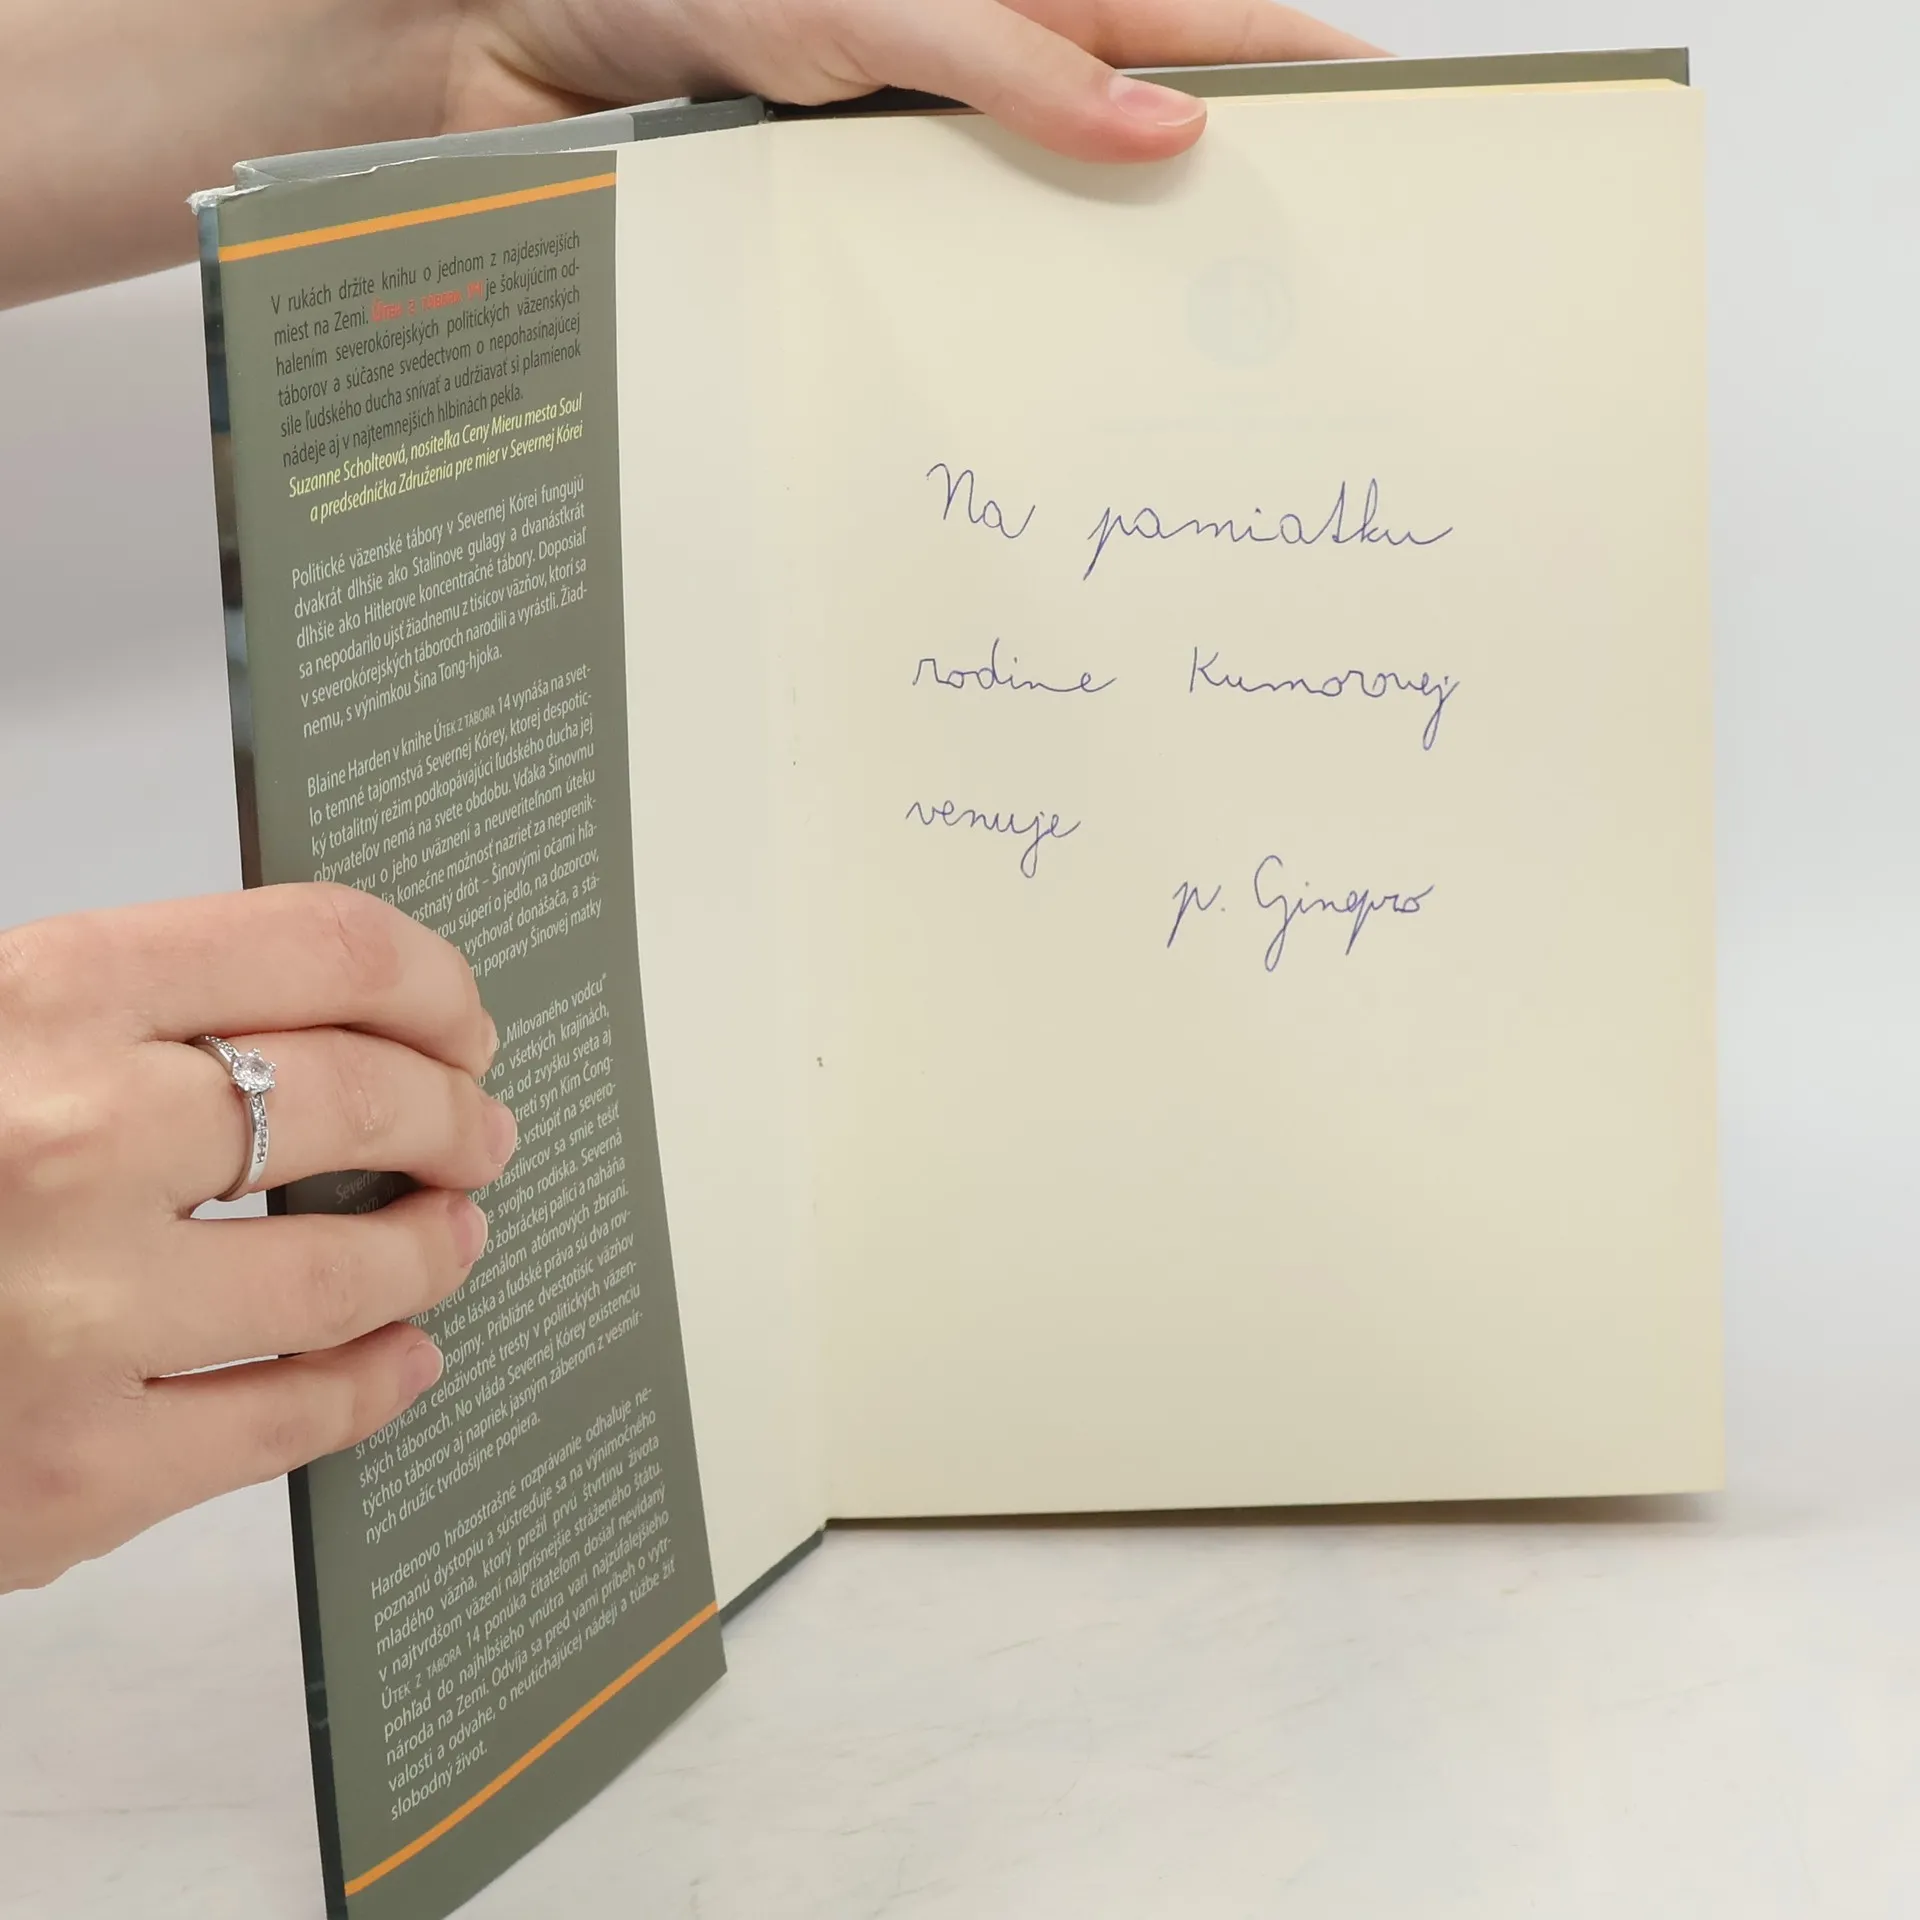 V rukách držíte knihu o jednom z najdesivejších
miest na Zemi. Útek z tábora 14 je šokujúcim od-
halením severokórejských politických väzenských
táborov a súčasne svedectvom o nepohasínajúcej
sile ľudského ducha snívať a udržiavať si plamienok
nádeje aj v najtemnejších hlbinách pekla.
Suzanne Scholteová, nositeľka Ceny Mieru mesta Soul
a predsedníčka Združenia pre mier v Severnej Kórei
Politické väzenské tábory v Severnej Kórei fungujú
dvakrát dlhšie ako Stalinove gulagy a dvanásťkrát
dlhšie ako Hitlerove koncentračné tábory. Doposiaľ
sa nepodarilo ujsť žiadnemu z tisícov väzňov, ktorí sa
v severokórejských táboroch narodili a vyrástli. Žiad-
nemu, s výnimkou Šina Tong-hjoka.
Blaine Harden v knihe ÚTEK Z TÁBORA 14 vynáša na svet-
lo temné tajomstvá Severnej Kórey, ktorej despotic-
ký totalitný režim podkopávajúci ľudského ducha jej
obyvateľov nemá na svete obdobu. Vďaka Šinovmu
o jeho uväznení a neuveriteľnom úteku
konečne možnosť nazrieť za neprenik-
ostnatý drôt – Šinovými očami hľa-
súperí o jedlo, na dozorcov,
vychovať donášača, a stá-
popravy Šinovej matky
„Milovaného vodcu“
vo všetkých krajinách,
od zvyšku sveta aj
tretí syn Kim Čong-
vstúpiť na severo-
šťastlivcov sa smie tešiť
svojho rodiska. Severná
o žobráckej palici a naháňa
svetu arzenálom atómových zbraní.
kde láska a ľudské práva sú dva rov-
pojmy. Približne dvestotisíc väzňov
si odpykáva celoživotné tresty v politických väzen-
ských táboroch. No vláda Severnej Kórey existenciu
týchto táborov aj napriek jasným záberom z vesmír-
nych družíc tvrdošijne popiera.
Hardenovo hrôzostrašné rozprávanie odhaľuje ne-
poznanú dystopiu a sústreďuje sa na výnimočného
mladého väzňa, ktorý prežil prvú štvrtinu života
v najtvrdšom väzení najprísnejšie stráženého štátu.
ÚTEK Z TÁBORA 14 ponúka čitateľom dosiaľ nevídaný
pohľad do najhlbšieho vnútra vari najzúfalejšieho
národa na Zemi. Odvíja sa pred vami príbeh o vytr-
valosti a odvahe, o neutíchajúcej nádeji a túžbe žiť
slobodný život.
Na pamiatku
rodine Kumorovej
venuje
p. Ginepro